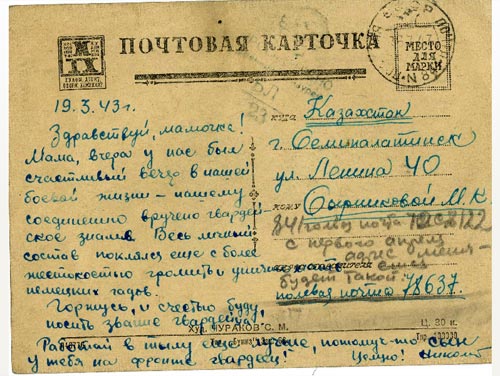 ПОЧТОВАЯ КАРТОЧКА
МЕСТО
ДЛЯ
МАРКИ
19.3.43 г.
Здравствуй, мамочка!
Мама, вчера у нас был
счастливый вечер в нашей
боевой жизни – нашему
соединению вручено гвардей-
ское знамя. Весь личный
состав поклялся еще с более
жестокостью громить и
немецких гадов.
Горжусь, и с честью буду,
носить звание гвардейца!
Работай в тылу еще лучше, потому-то сын
у тебя на фронте гвардеец!
Целую! Николай
куда Казахстан
г. Семипалатинск
ул. Ленина 40
кому
М. К.
с первого апреля
адрес
будет такой:
полевая почта 78637.
Худ. ЧУРАКОВ С. М.
Ц. 30 к.